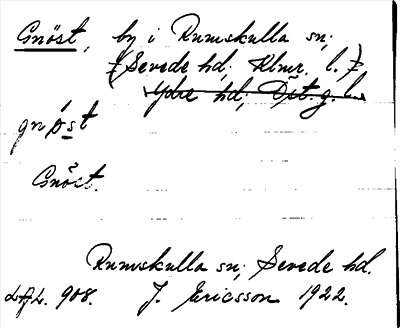 Gnöst, by i Rumskulla sn;
(Sevede hd, Klmr. l.)
Ydre hd; Öst.g. l.
gnøst
Gnöst.
Rumskulla sn; Sevede hd.
908. J. Ericsson 1922.